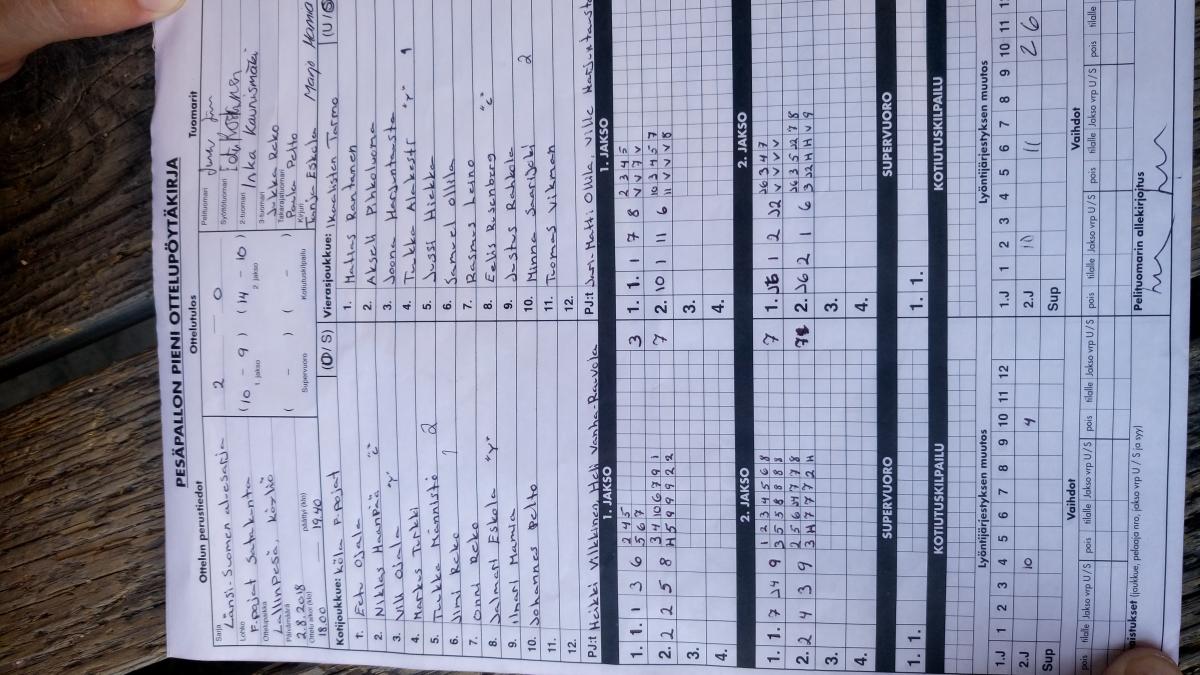 PESÄPALLON PIENI OTTELUPÖYTÄKIRJA
Ottelun perustiedot
Ottelutulos
Tuomarit
Sarja
Länsi-Suomen aluesarja
Lohko
F-pojat Satakunta
Ottelupaikka
Lallinpesä, Köyliö
Päivämäärä
2.8.2018
Ottelu alkoi (klo)
18.00
päättyi (klo)
19.40
2 — 0
(10 - 9) (14 - 10)
1. jakso
2. jakso
( - ) ( - )
Supervuoro
Kotiutuskilpailu
Pelituomari
Syöttötuomari
2-tuomari
Inka Kaunismäki
3-tuomari
Jukka Reko
Takarajatuomari
Paula Pelto
Kirjuri
Tanja Eskola Marjo Hamma
Kotijoukkue: KöLa F-pojat
(U/S)
Vierasjoukkue: Ikaalisten Tarmo
(U/S)
1. Eetu Ojala
2. Niklas Haanpää "c"
3. Vili Ojala "r"
4. Markus Turkki
5. Tuukka Männistö 2
6. Jimi Reko 1
7. Onni Reko
8. Jalmari Eskola "r"
9. Ilmari Mamia
10. Johannes Pelto
11.
12.
1. Matias Rantanen
2. Akseli Pihkoluoma
3. Joona Harjuntausta
4. Tuukka Alakesti "r" 1
5. Jussi Hiekka
6. Samuel Ollila
7. Rasmus Leino
8. Eelis Rosenberg "c"
9. Justus Rahkila
10. Minna Saarijoki 2
11. Tuomas Vikman
12.
PJ:t Heikki Vilkkinen, Heli Vanha-Raivola
PJ:t Jari-Matti Ollila, Ville Harjuntausta
1. JAKSO
1. JAKSO
1. 1. 1 3 6
2 4 5
5 6 7
3
2. 2 2 5 8
3 4 10 6 7 9 1
H 5 9 9 9 2 2
7
3.
4.
1. 1. 1 7 8
2 3 4 5
V V 7 V
2. 10 1 11 6
10 3 4 5 7
11 V V V 8
3.
4.
2. JAKSO
2. JAKSO
1. 1. 7 J4 9
1 2 3 4 5 6 8
3 5 5 8 8 8 8
7
2. 2 4 3 9
2 5 6 J4 7 7 8
3 H 7 7 7 2 H
3.
4.
1. J6 1 2 J2
J6 3 4 7
V V V V
2. J6 2 1 6
J6 3 5 J2 7 8
3 J2 H H V 9
3.
4.
SUPERVUORO
SUPERVUORO
1. 1.
1. 1.
KOTIUTUSKILPAILU
KOTIUTUSKILPAILU
Lyöntijärjestyksen muutos
Lyöntijärjestyksen muutos
1.J 1 2 3 4 5 6 7 8 9 10 11 12
2.J 10 4
Sup
1.J 1 2 3 4 5 6 7 8 9 10 11
2.J 10 11 2 6
Sup
Vaihdot
Vaihdot
pois tilalle Jakso vrp U/S pois tilalle Jakso vrp U/S pois tilalle Jakso vrp U/S
pois tilalle Jakso vrp U/S pois tilalle Jakso vrp U/S pois tilalle
(joukkue, pelaaja nro, jakso vrp U / S ja syy)
Pelituomarin allekirjoitus